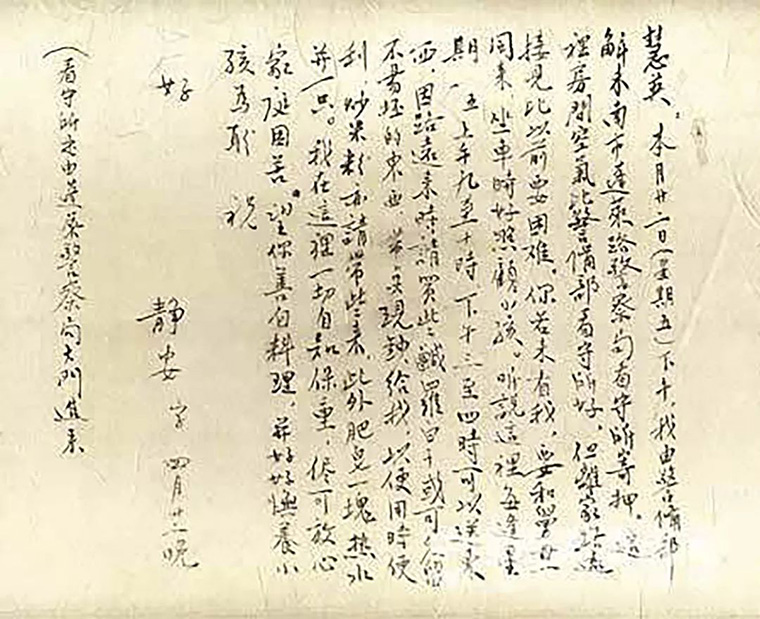 慧英：本月廿二日（星期五）下午，我由警備部
解来南市蓬萊路警察局看守所寄押，這
裡房間空氣比警備部看守所好，但離家路遠
接見比以前要困難。你若来看我，要和學世
同来，坐車時好照顧小孩。听說這裡每逢星
期一、五上午九至十時，下午三至四時可以送東
西，因路遠来時請買些鹹羅白干或可久留
不易坯的東西，帶点現鈔給我，以便用時便
利，炒米粉亦請帶些来，此外肥皂一塊，热水
并一只。我在這裡一切自知保重，侭可放心
家庭困苦。望你善自料理，并好好撫養小
孩為盼 祝
好
靜安字 四月廿二晚
（看守所是由蓬萊警察局大門進来